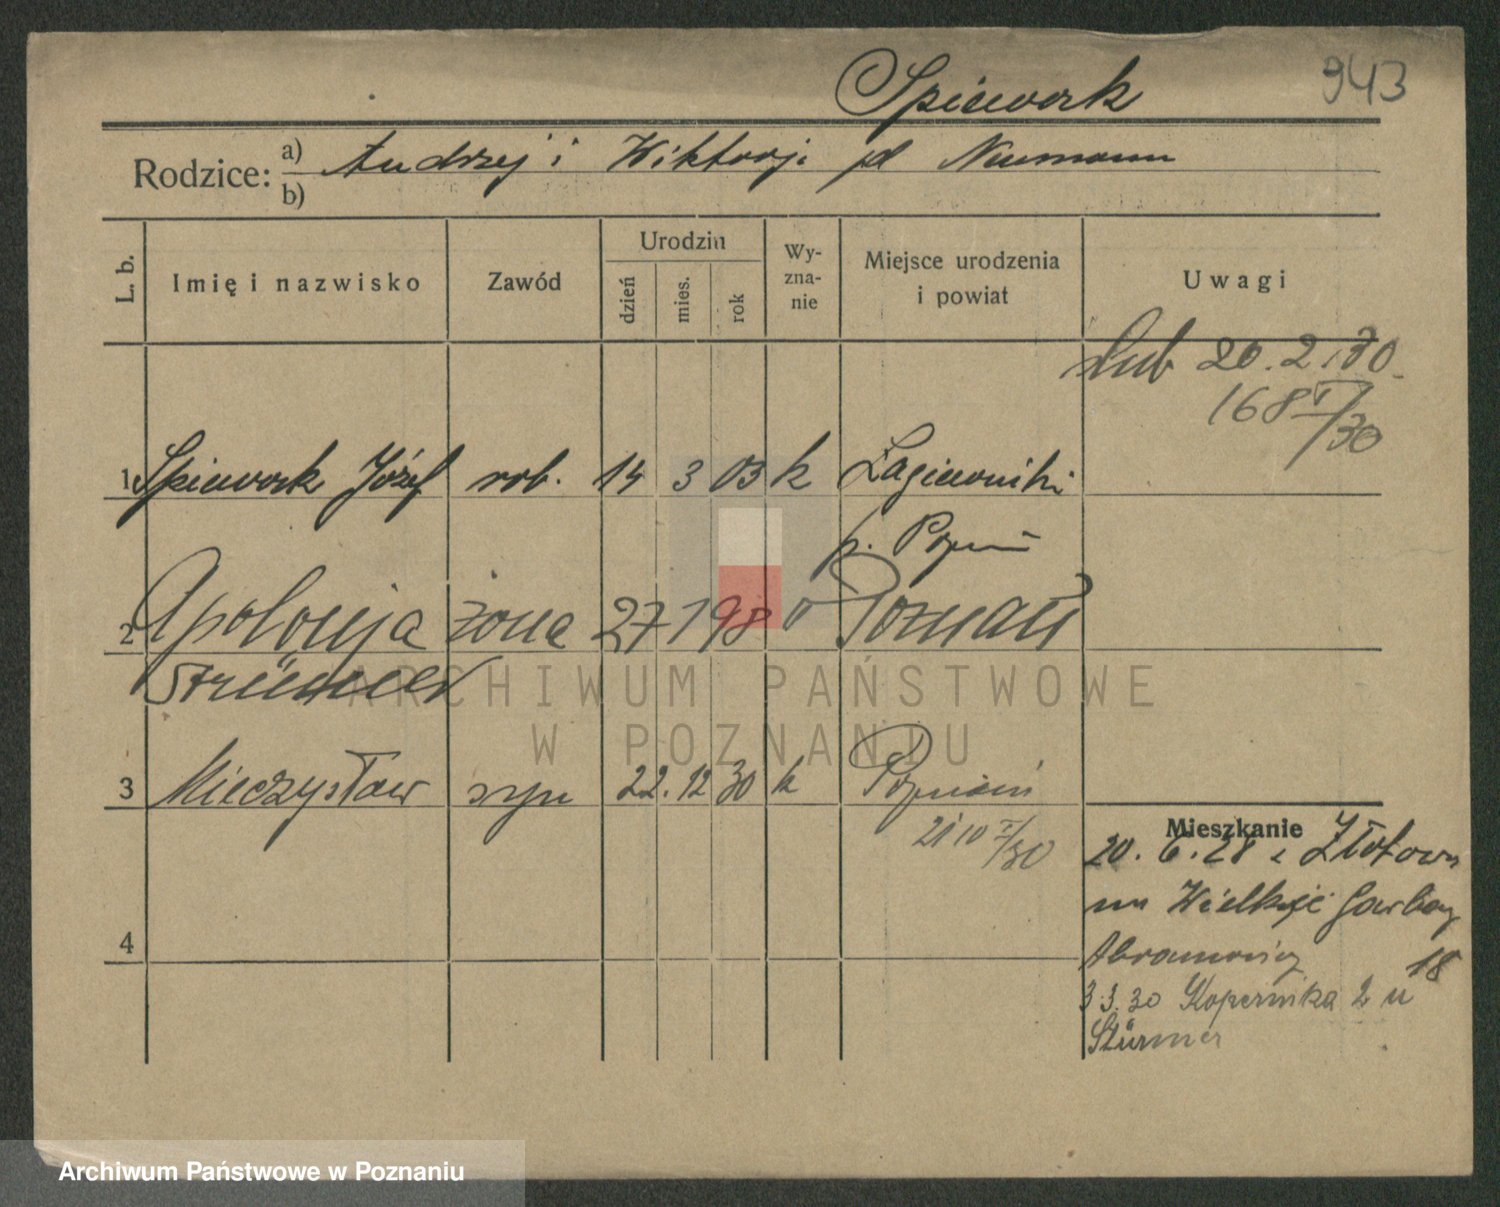 943
Śpiework
Rodzice: a) Andrzej i Wiktorji
b)
L. b.
Imię i nazwisko
Zawód
Urodzin
dzień
mies.
rok
Wy-
zna-
nie
Miejsce urodzenia
i powiat
Uwagi
ślub 20.2.30.
168 II/30
1 Śpiework Józef rob. 14 3 03 k Łagiewniki
p. Poznań
2 Apolonja żona 27 1 98 Poznań
ARCHIWUM PAŃSTWOWE
W POZNANIU
3 Mieczysław syn 22. 12 30 k Poznań
2110 /30
Mieszkanie
20. 6. 28 z Złotowa
na Wielkie Garbary
18
3.3.30 Kopernika 2 u
Stürmer
4
Archiwum Państwowe w Poznaniu